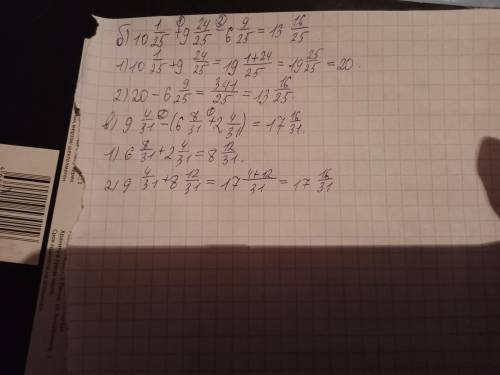 б) 10 1/25 + 9 24/25 - 6 9/25 = 13 16/25
1) 10 1/25 + 9 24/25 = 19 (1+24)/25 = 19 25/25 = 20.
2) 20 - 6 9/25 = 341/25 = 13 16/25.
в) 9 4/31 - (6 8/31 + 2 4/31) = 17 16/31.
1) 6 8/31 + 2 4/31 = 8 12/31.
2) 9 4/31 + 8 12/31 = 17 (4+12)/31 = 17 16/31